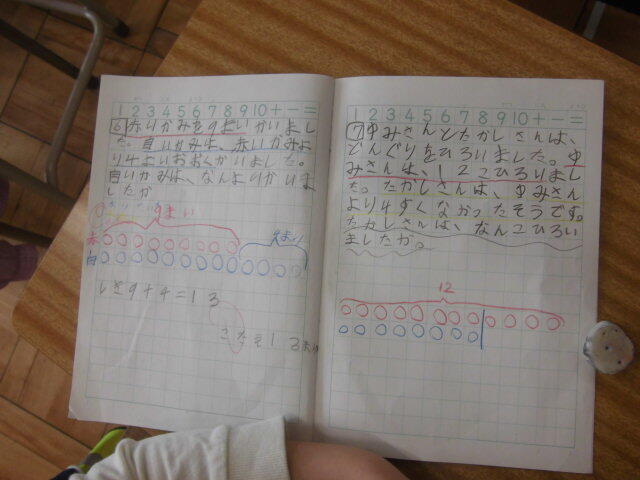 1 2 3 4 5 6 7 8 9 10 + - =
6 赤いかみを9まいかいまし
た。白いかみは、赤いかみよ
り4まいおおくかいました。
白いかみは、なんまいかいま
したか
9まい
4まい
赤
白
しき9+4=13
こたえ13まい
1 2 3 4 5 6 7 8 9 10 + - =
7 ゆみさんとたかしさんは、
どんぐりをひろいました。ゆ
みさんは、12こひろいまし
た。たかしさんは、ゆみさん
より4すくなかったそうです。
たかしさんは、なんこひろい
ましたか。
12